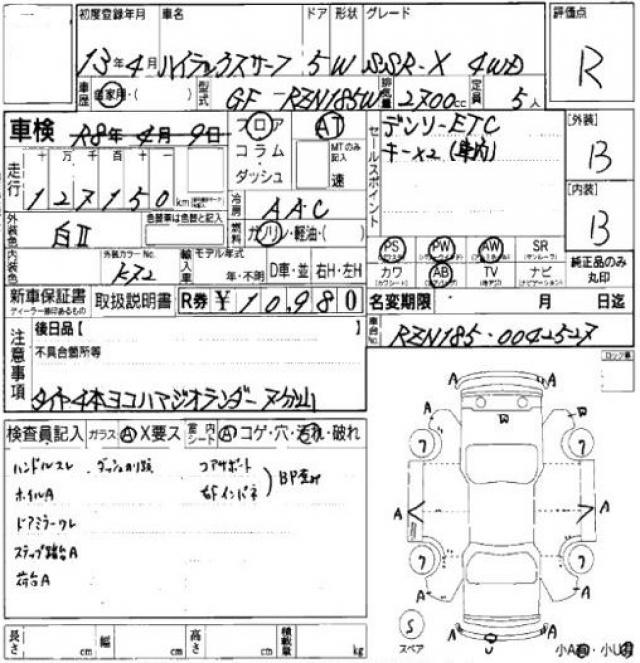 初度登録年月 車名 ドア 形状 グレード 評価点
13年4月 ハイラックスサーフ 5 W SSR-X 4WD R
車歴 自家用・( ) 型式 GF-RZN185W 排気量 2700cc 定員 5人
車検 R8年4月9日 フロア AT セールスポイント デンソーETC [外装]
コラム MTのみ記入 キー×2(車内) B
走行 十万千百十一 ダッシュ 速
127150km 冷房 AAC [内装]
外装色 白II 色替車は色替と記入 燃料 ガソリン・軽油・( ) B
PS PW AW SR
内装色 外装カラーNo. K72 輸入車 モデル年式 年・不明 D車・並 右H・左H カワ AB TV ナビ 純正品のみ丸印
新車保証書 ディーラー捺印あるもの 取扱説明書 R券 ¥10,980 名変期限 月 日迄
注意事項 後日品【 】 車台No. RZN185-0042527
不具合箇所等 ロック車
タイヤ4本ヨコハマジオランダー
検査員記入 ガラス A X要ス 室内シート A コゲ・穴・汚れ・破れ
ハンドルスレ コアサポート
ホイルA 右Fインパネ
ドアミラーワレ
ステップ踏台A
荷台A
A A
A W A
ワ ワ
A A
ワ ワ
A A
S A U A
スペア
長さ cm 幅 cm 高さ cm 積載量 kg 小A 小U